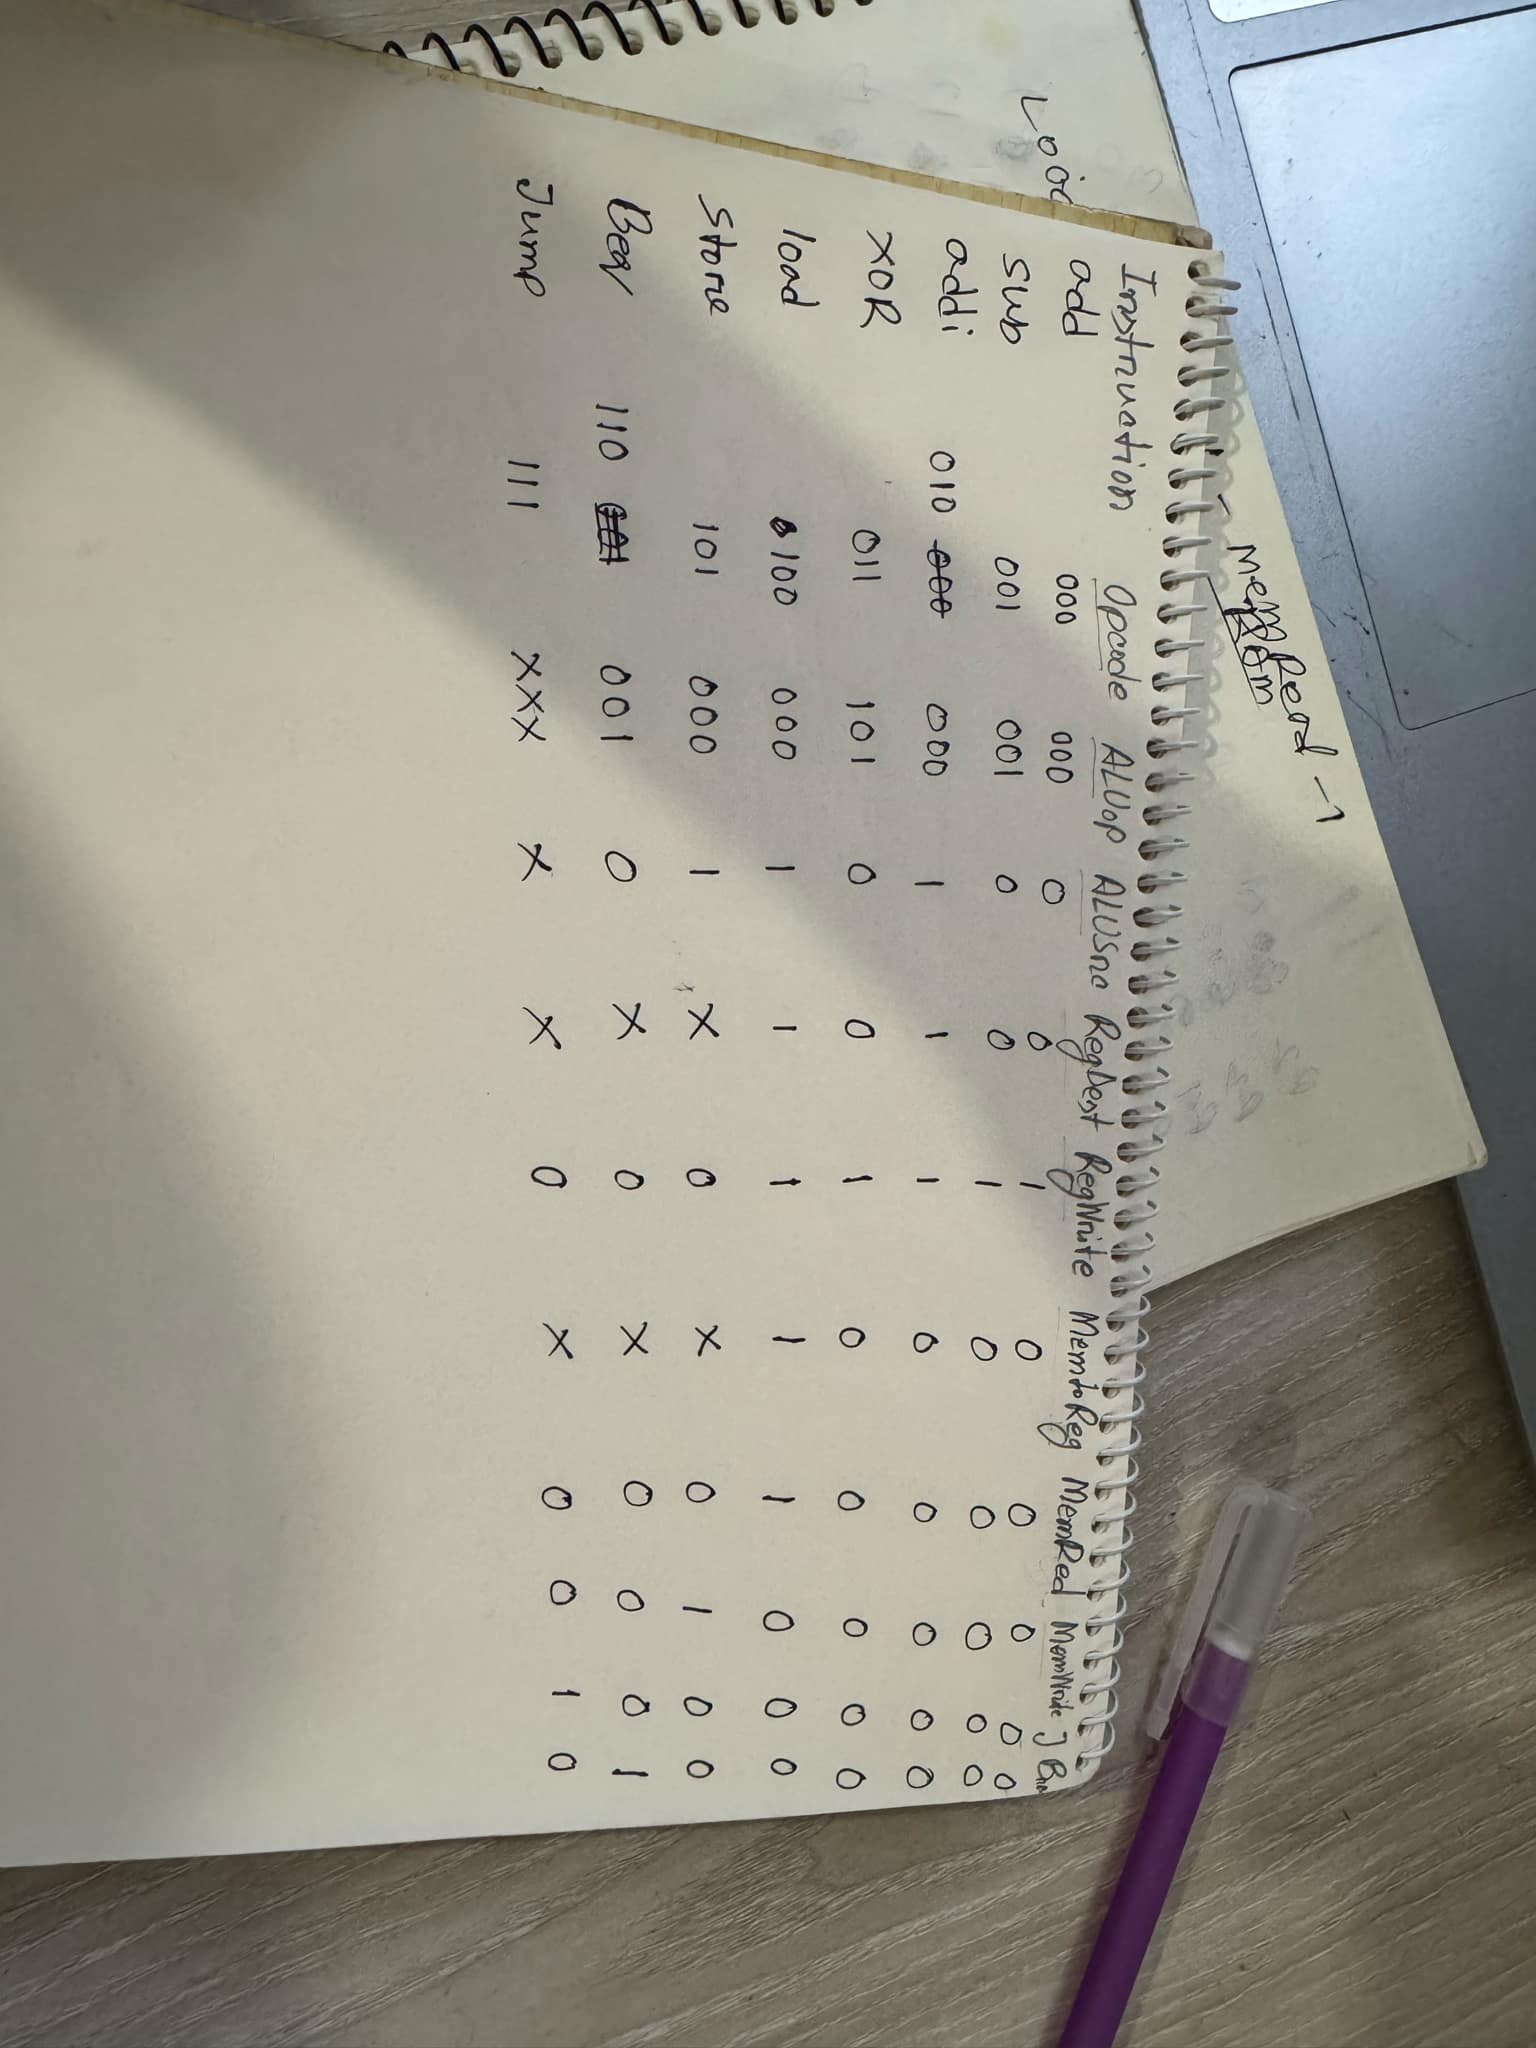 - MemRead -1
ROM
Load
Instruction Opcode ALUop ALUSrc RegDest RegWrite MemtoReg MemRed MemWrite J Bra
add 000 000 0 0 1 0 0 0 0 0
sub 001 001 0 0 1 0 0 0 0 0
addi 010 000 000 1 1 1 0 0 0 0 0
XOR 011 101 0 0 1 0 0 0 0 0
load 100 000 1 1 1 1 1 0 0 0
store 101 000 1 X 0 X 0 1 0 0
Beq 110 001 001 0 X 0 X 0 0 0 1
Jump 111 XXX X X 0 X 0 0 1 0